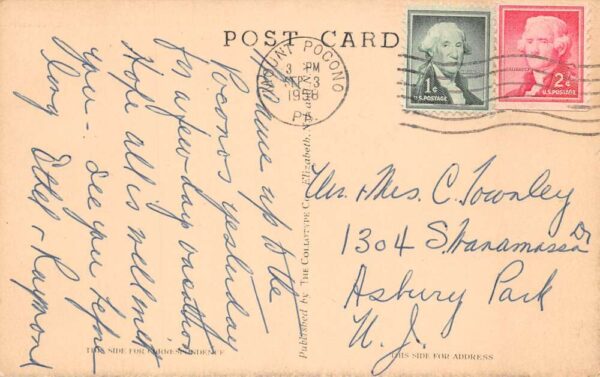 POST CARD
MOUNT POCONO
3 PM
SEP 3
1958
PA.
1¢
U.S. POSTAGE
2¢
U.S. POSTAGE
Came up to the
Poconos yesterday
for a few days vacation
Hope all is well with
you - See you before
long Ethel & Raymond
Published by THE COLLOTYPE CO., Elizabeth, N.J.
Mr. & Mrs. C. Townley
1304 S. Wanamassa Dr
Asbury Park
N. J.
THIS SIDE FOR CORRESPONDENCE
THIS SIDE FOR ADDRESS